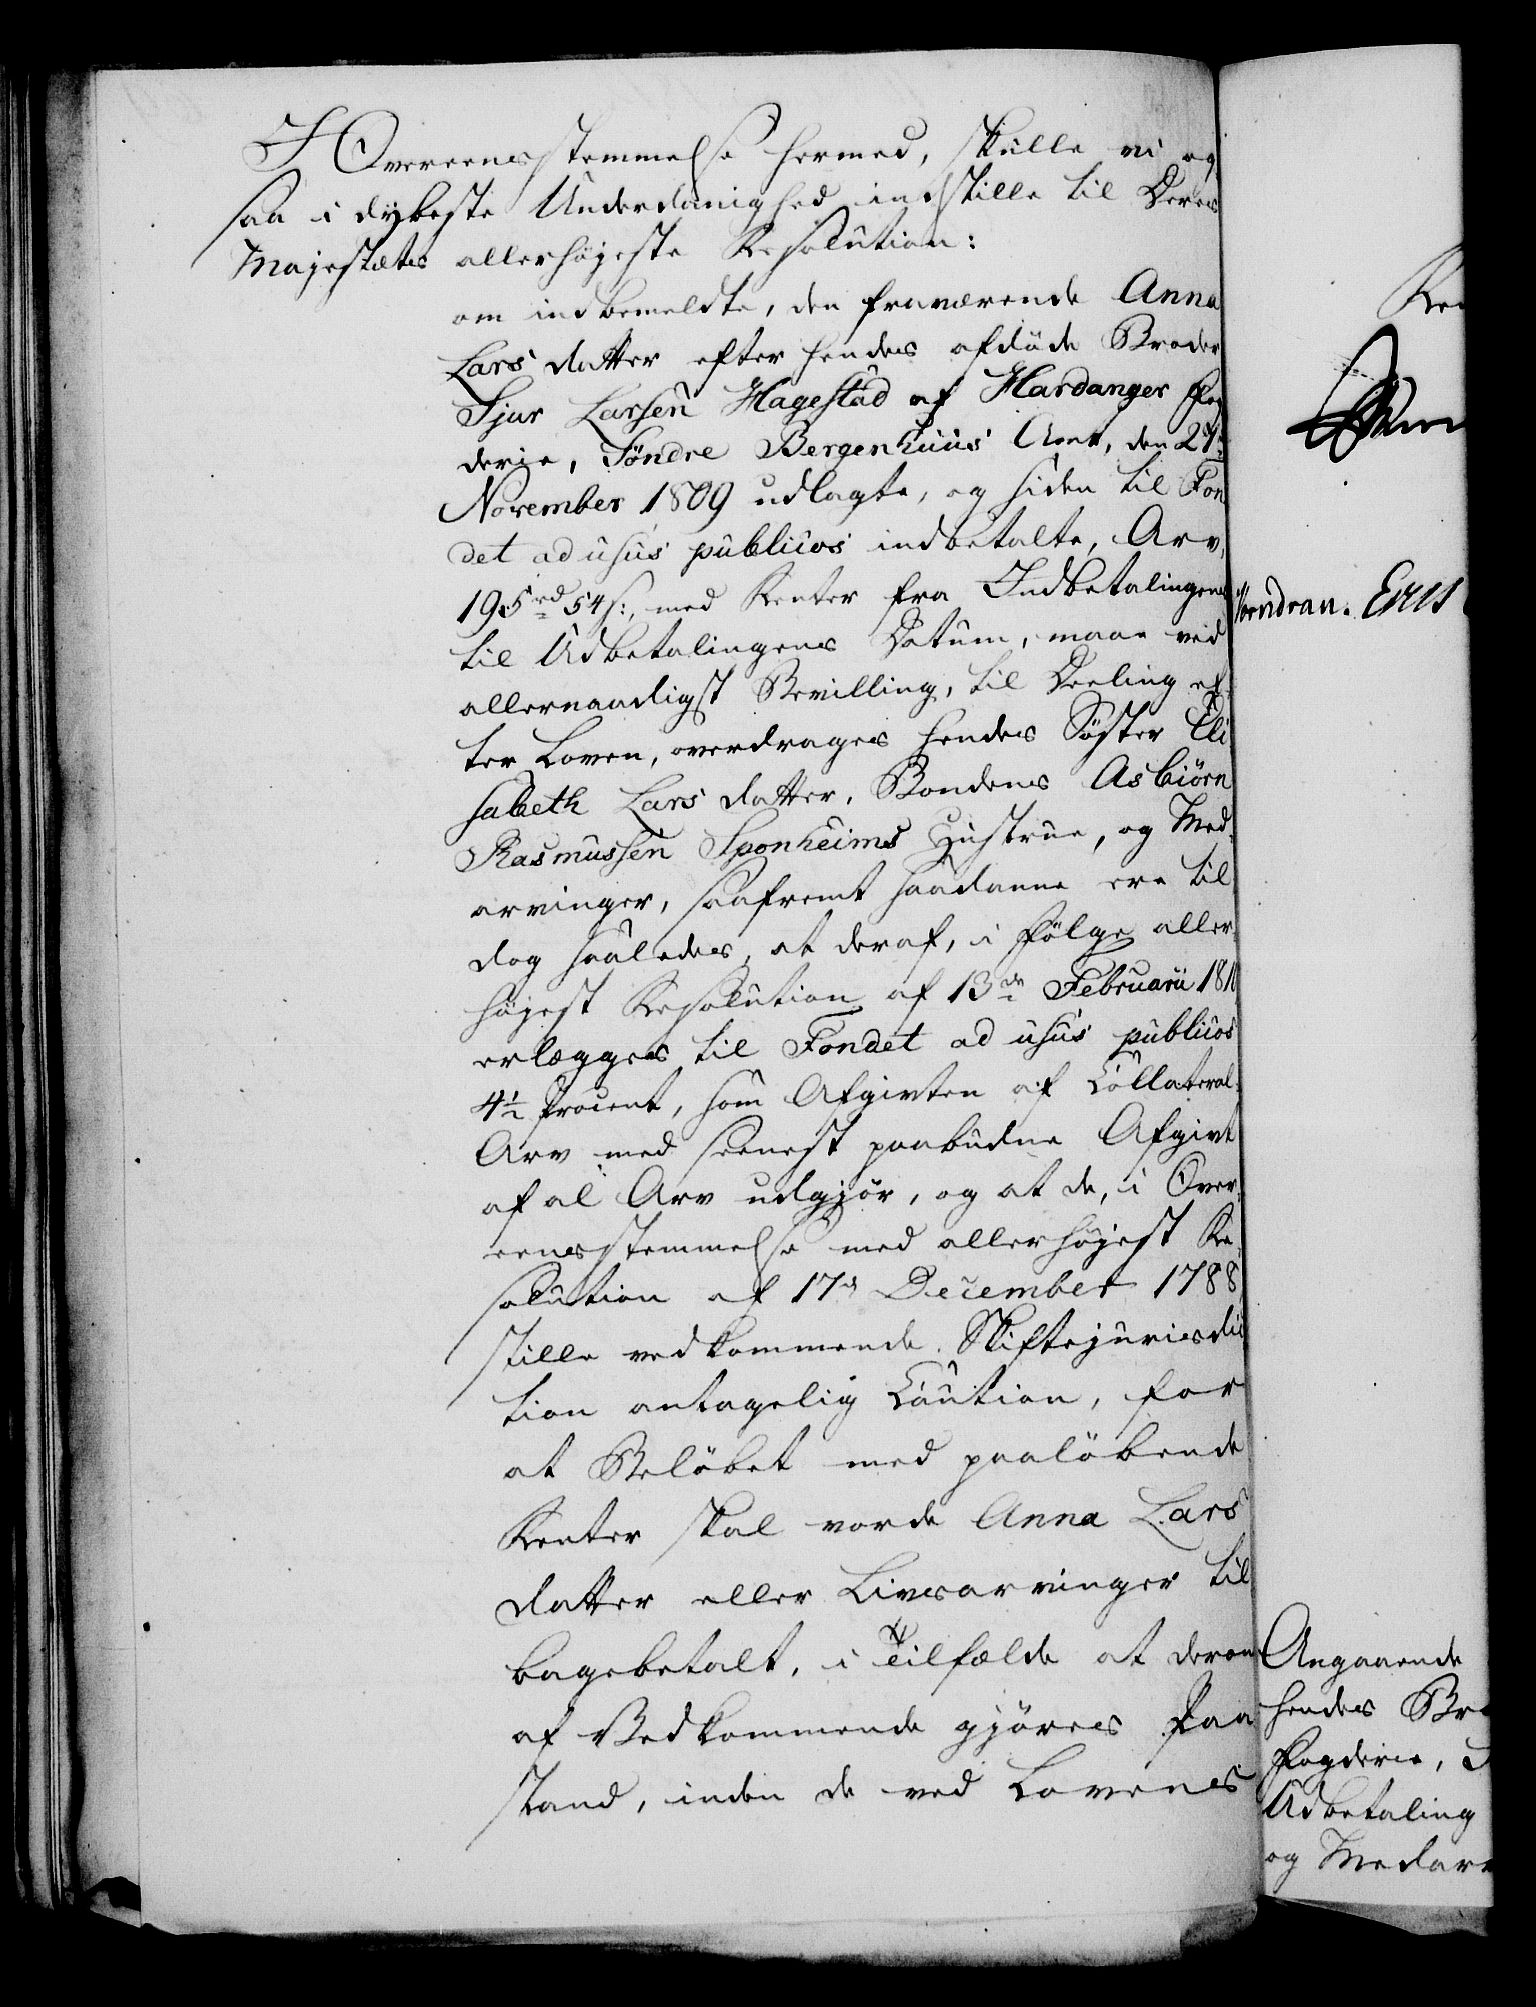 I Overeensstemmelse hermed, skulle vi og
saa i dybeste Underdanighed indstille til Deres
Majestæts allerhøjeste Resolution:
om indbemeldte, den fraværende Anna
Lars datter efter hendes afdøde Broder
Sjur Larsen Hagestad af Hardanger Fog
derie, Søndre Bergenhuus Amt, den 27de
November 1809 udlagte, og siden til Fon
det ad usus publicos indbetalte, Arv,
195 rd 54 s:, med Renter fra Indbetalingens
til Udbetalingens Datum, maae ved
allernaadigst Bevilling, til Deeling ef
ter Loven, overdrages hendes Søster Eli
sabeth Lars datter, Bondens Asbiørn
Rasmussen Sponheims Hustrue, og Med
arvinger, saafremt saadanne ere til
dog saaledes, at deraf, i Følge aller
højest Resolution af 13de Februarii 1810
erlægges til Fondet ad usus publicos
4½ Procent, som Afgivten af Collateral
Arv med seenest paabudne Afgivt
af al Arv udgjør, og at de, i Over
eensstemmelse med allerhøjest Re
solution af 17de December 1788
stille vedkommende Skiftejurisdic
tion antagelig Caution, for
at Beløbet med paaløbende
Renter skal vorde Anna Lars
datter eller Livsarvinger til
bagebetalt, i Tilfælde at derom
af Vedkommende gjøres Paa
stand, inden de ved Lovens
Angaaende
hendes Bro
Fogderie, S
Udbetaling
og Medarv